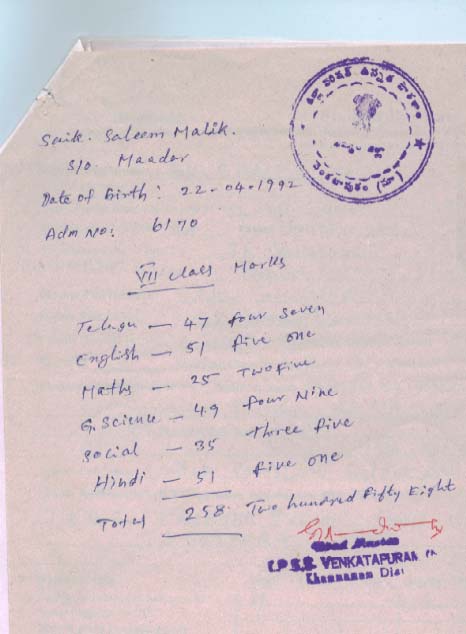 జిల్లా పరిషత్ ఉన్నత పాఠశాల
ఖమ్మం జిల్లా
వెంకటాపురం (నూ)
Saik. Saleem Malik.
S/o. Maadar
Date of birth: 22-04-1992
Adm No: 6170
VII class Marks
Telugu — 47 four seven
English — 51 five one
Maths — 25 Two five
G. Science — 49 four Nine
Social — 35 three five
Hindi — 51 five one
Total 258 Two hundred fifty Eight
Head Master
Z.P.S.S. VENKATAPURAM
Khammam Dist